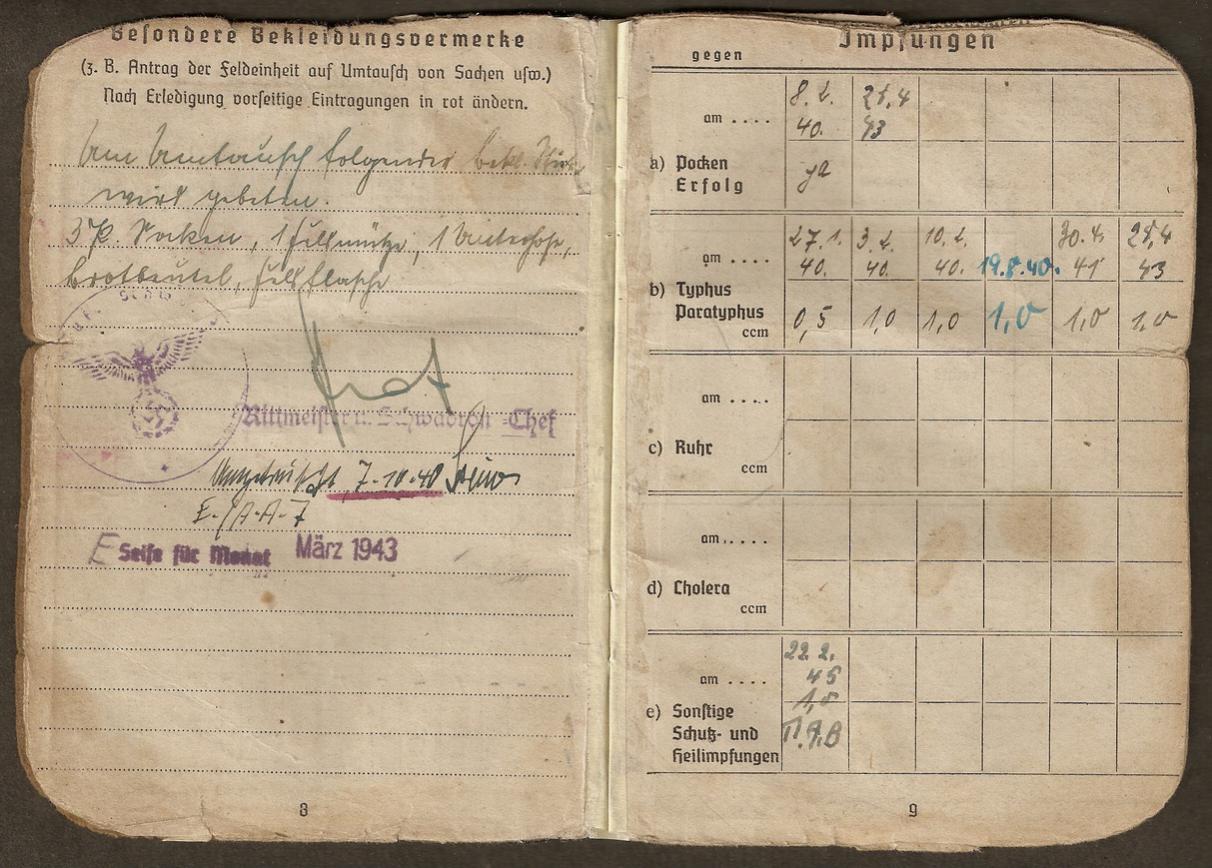 Besondere Bekleidungsvermerke
(z. B. Antrag der Feldeinheit auf Umtausch von Sachen usw.)
Nach Erledigung vorseitige Eintragungen in rot ändern.
Um Umtausch folgender Bekl. Stücke
wird gebeten.
3 P. Socken, 1 Feldmütze, 1 Unterhose,
Brotbeutel, Feldflasche
Rittmeister u. Schwadron-Chef
Umgetauscht 7-10-40
E-/A-A-7
E Seife für Monat März 1943
8
Impfungen
gegen
am .... 8.2. 40. 25.4 43
a) Pocken
Erfolg ja
am .... 27.1. 40. 3.2. 40. 10.2. 40. 19.8.40. 30.4. 41 25.4 43
b) Typhus
Paratyphus
ccm 0,5 1,0 1,0 1,0 1,0 1,0
am ....
c) Ruhr
ccm
am ....
d) Cholera
ccm
am .... 22.2. 45
1,0
e) Sonstige
Schutz- und
Heilimpfungen
9